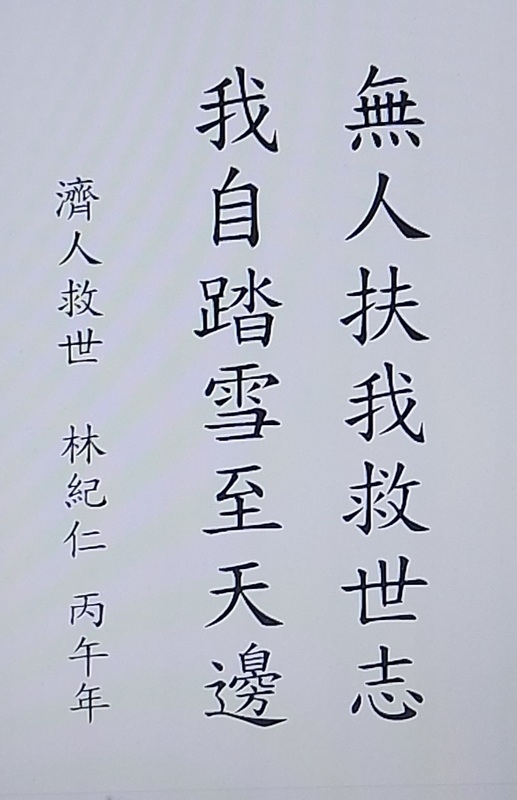 無人扶我救世志
我自踏雪至天邊
濟人救世 林紀仁 丙午年